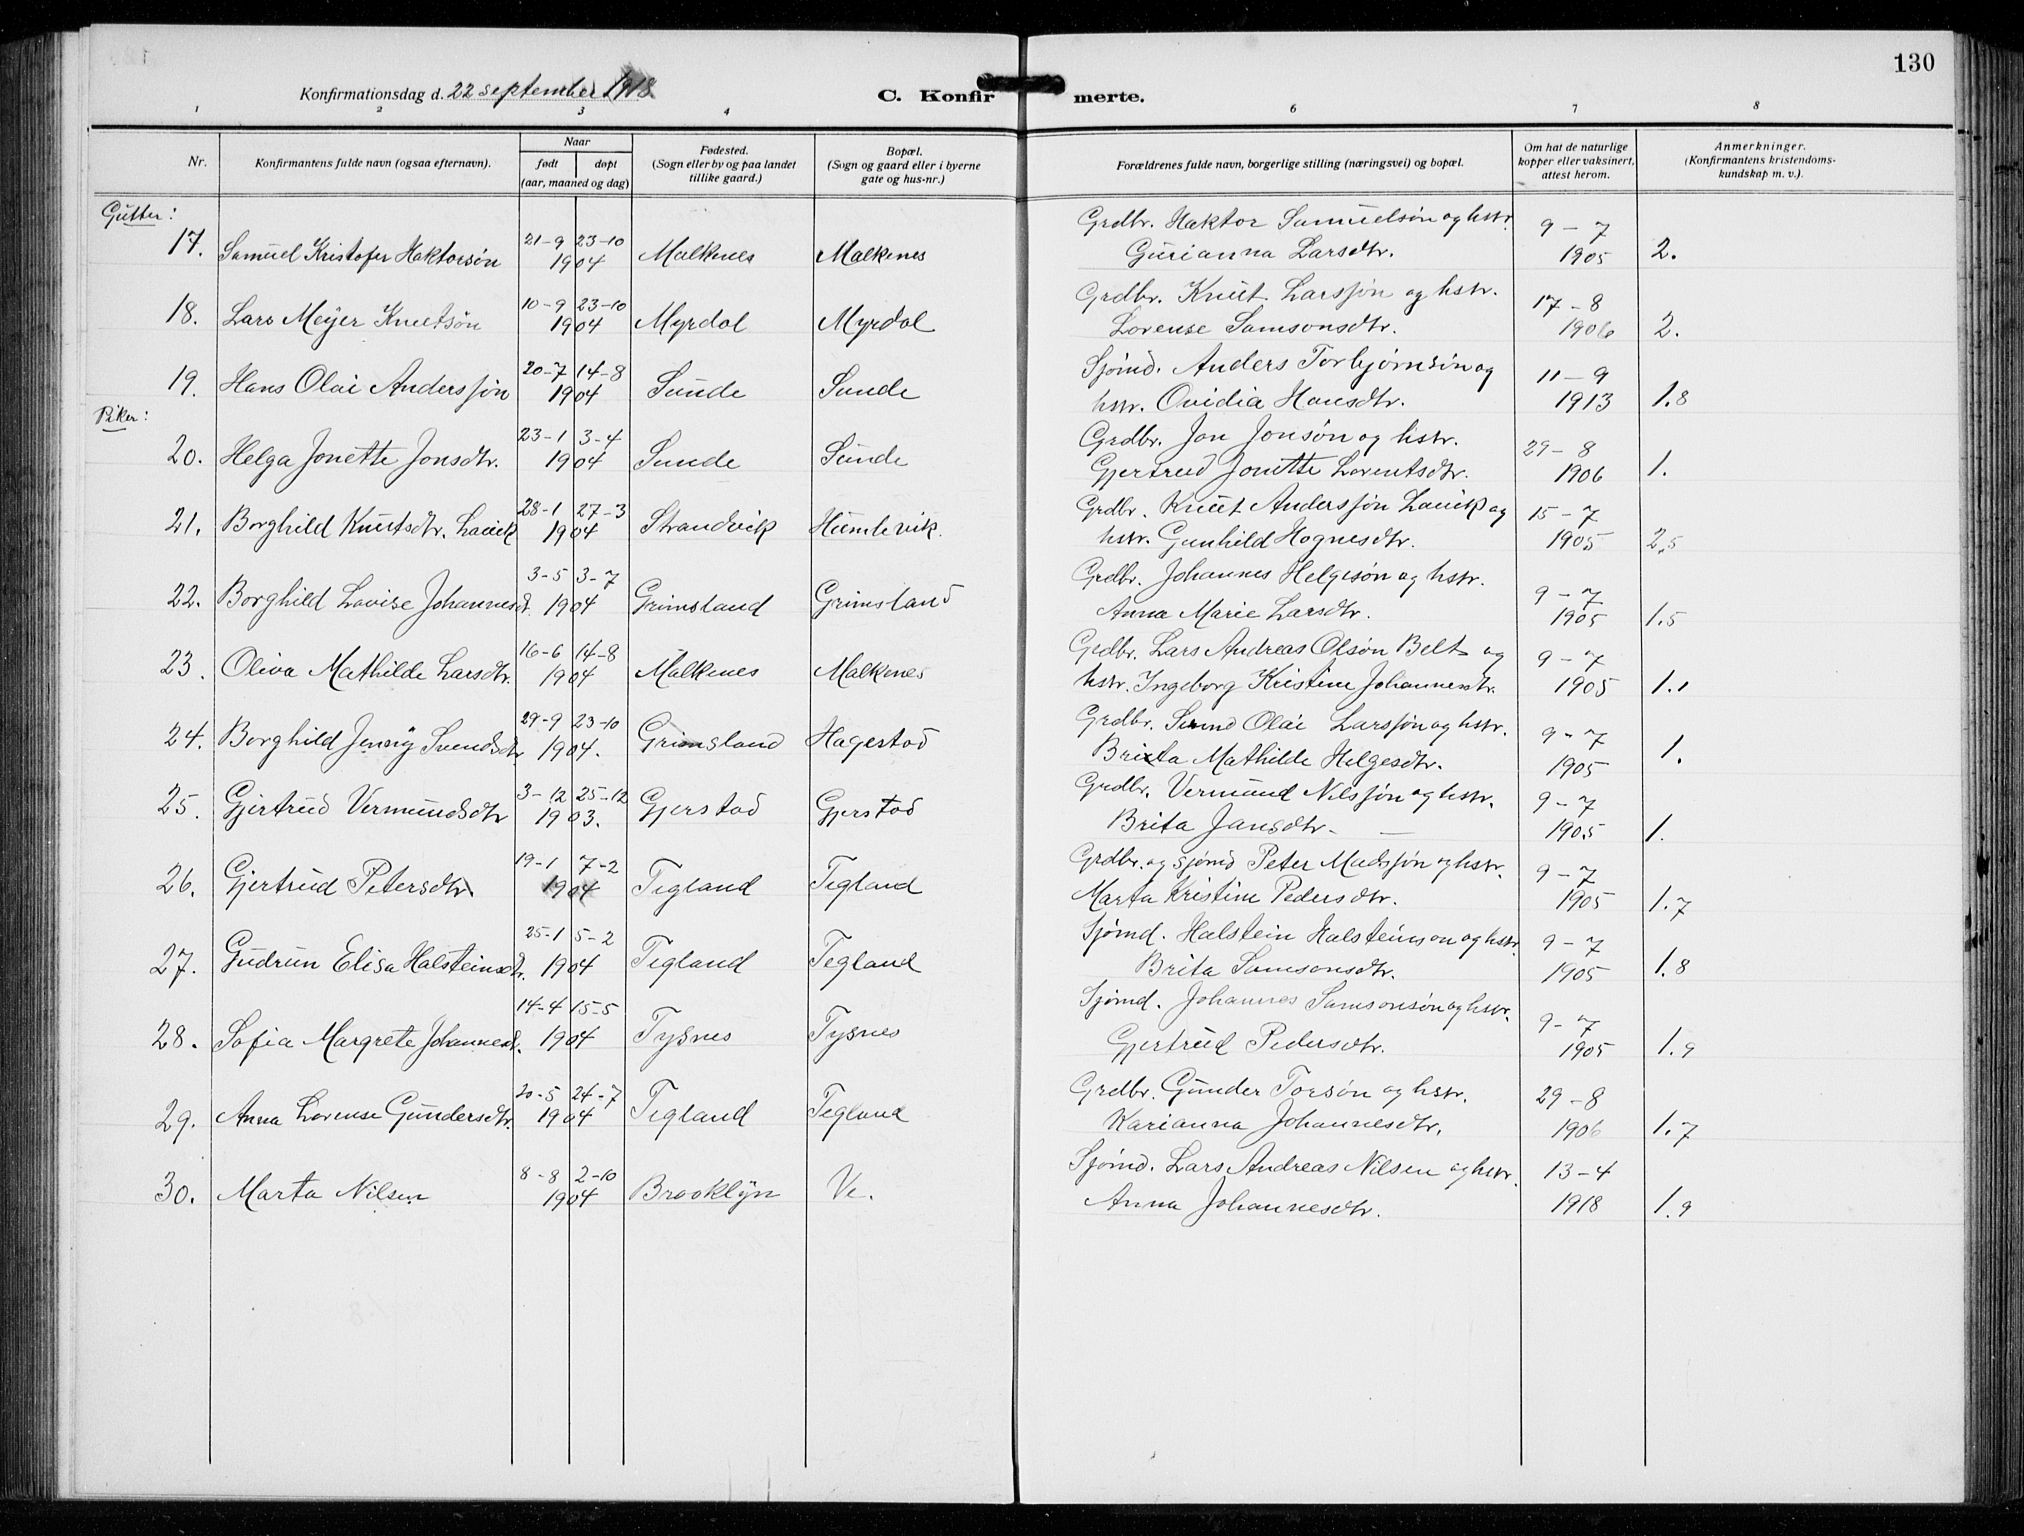 130
Konfirmationsdag d. 22 september 1918
C. Konfirmerte.
1 2 3 4 5 6 7 8
Nr.
Konfirmantens fulde navn (ogsaa efternavn).
Naar
født døpt
(aar, maaned og dag)
Fødested.
(Sogn eller by og paa landet
tillike gaard.)
Bopæl.
(Sogn og gaard eller i byerne
gate og hus-nr.)
Forældrenes fulde navn, borgerlige stilling (næringsvei) og bopæl.
Om hat de naturlige
kopper eller vaksinert,
attest herom.
Anmerkninger.
(Konfirmantens kristendoms-
kundskap m. v.).
Gutter:
17. Samuel Kristofer Haktorsøn 21-9 23-10 1904 Malkenes Malkenes Grdbr. Haktor Samuelsøn og hstr. 9-7
Gurianna Larsdtr. 1905 2.
18. Lars Meyer Knutsøn 10-9 23-10 1904 Myrdal Myrdal Grdbr. Knut Larssøn og hstr. 17-8
Lorense Samsonsdtr. 1906 2.
19. Hans Olai Anderssøn 20-7 14-8 1904 Sunde Sunde Sjømd. Anders Torbjørnsøn og 11-9
hstr. Ovidia Hansdtr. 1913 1.8
Piker:
20. Helga Jonette Jonsdtr. 23-1 3-4 1904 Sunde Sunde Grdbr. Jon Jonsøn og hstr. 29-8
Gjertrud Jonette Lorentsdtr. 1906 1.
21. Borghild Knutsdtr. Lavik 28-1 27-3 1904 Strandvik Humlevik. Grdbr. Knut Anderssøn Lavik og 15-7
hstr. Gunhild Hognesdtr. 1905 2,5
22. Borghild Lovise Johannesd. 3-5 3-7 1904 Grimsland Grimsland Grdbr. Johannes Helgesøn og hstr. 9-7
Anna Marie Larsdtr. 1905 1.5
23. Oliva Mathilde Larsdtr. 16-6 14-8 1904 Malkenes Malkenes Grdbr. Lars Andreas Olsøn Belt og 9-7
hstr. Ingeborg Kristine Johannesdtr. 1905 1.1
24. Borghild Jenny Svendsdtr 29-9 23-10 1904. Grimsland Hagestad Grdbr. Svend Olai Larssøn og hstr. 9-7
Brita Mathilde Helgesdtr. 1905 1.
25. Gjertrud Vermundsdtr 3-12 25-12 1903. Gjerstad Gjerstad Grdbr. Vermund Nilssøn og hstr. 9-7
Brita Jansdtr. 1905 1.
26. Gjertrud Petersdtr 19-1 7-2 1904 Tegland Tegland Grdbr. og sjømd Peter Madssøn og hstr. 9-7
Marta Kristine Pedersdtr. 1905 1.7
27. Gudrun Elisa Halsteinsdtr. 25-1 5-2 1904 Tegland Tegland Sjømd. Halstein Halsteinson og hstr. 9-7
Brita Samsonsdtr. 1905 1.8
28. Sofia Margrete Johannesd. 14-4 15-5 1904 Tysnes Tysnes Sjømd. Johannes Samsonsøn og hstr. 9-7
Gjertrud Pedersdtr. 1905 1.9
29. Anna Lorense Gundersdtr. 20-5 24-7 1904 Tegland Tegland Grdbr. Gunder Torsøn og hstr. 29-8
Karianna Johannesdtr. 1906 1.7
30. Marta Nilsen 8-8 2-10 1904 Brooklyn Ve. Sjømd. Lars Andreas Nilsen og hstr. 13-4
Anna Johannesdtr. 1918 1.9